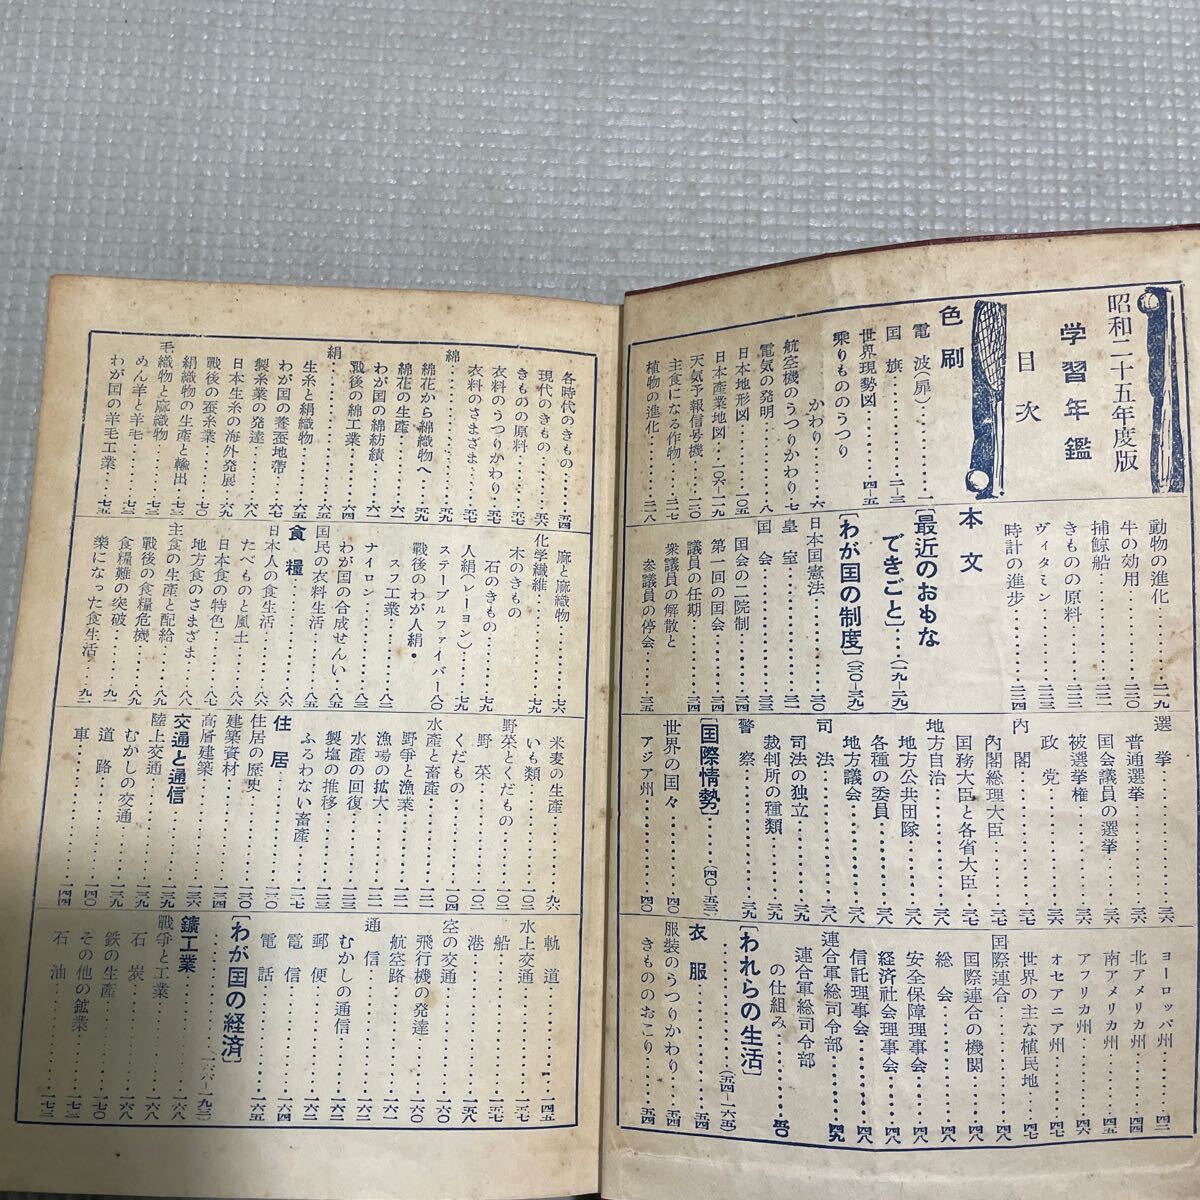 昭和二十五年度版
学習年鑑
目次
色刷
電波(扉)……一
国旗……二―三
世界現勢図……四―五
乗りもののうつり
かわり……六
航空機のうつりかわり…七
電気の発明……八
日本地形図……一〇五
日本産業地図…一〇六―一一九
天気予報信号機……一二〇
主食になる作物……二一七
植物の進化……二一八
動物の進化……二一九
牛の効用……二二〇
捕鯨船……二二一
きものの原料……二二二
ヴィタミン……二二三
時計の進歩……二二四
本文
[最近のおもな
できごと]……(一九―二九)
[わが国の制度](三〇―三九)
日本国憲法……三〇
皇室……三一
国会……三二
国会の二院制……三三
第一回の国会……三四
議員の任期……三四
衆議員の解散と
参議員の停会……三五
選挙……三六
普通選挙……三六
国会議員の選挙……三六
被選挙権……三六
政党……三六
内閣……三七
内閣総理大臣……三七
国務大臣と各省大臣……三七
地方自治……三七
地方公共団隊……三八
各種の委員……三八
地方議会……三八
司法……三八
司法の独立……三八
裁判所の種類……三九
警察……三九
[国際情勢]……(四〇―五三)
世界の国々……四〇
アジア州……四〇
ヨーロッパ州……四二
北アメリカ州……四四
南アメリカ州……四五
アフリカ州……四六
オセアニア州……四七
世界の主な植民地……四七
国際連合……四八
国際連合の機関……四八
総会……四八
安全保障理事会……四八
経済社会理事会……四八
信託理事会……四八
連合軍総司令部……四九
連合軍総司令部
の仕組み……五〇
[われらの生活]……(五四―一六五)
衣服……五四
服装のうつりかわり……五四
きもののおこり……五四
各時代のきもの……五四
現代のきもの……五六
きものの原料……五七
衣料のうつりかわり……五七
衣料のさまざま……五七
綿……五九
綿花から綿織物へ……五九
綿花の生産……六一
わが国の綿紡績……六二
戰後の綿工業……六四
絹……六五
生糸と絹織物……六五
わが国の養蚕地帯……六六
製糸業の発達……六七
日本生糸の海外発展……六九
戰後の蚕糸業……七〇
絹織物の生産と輸出……七二
毛織物と麻織物……七三
めん羊と羊毛……七三
わが国の羊毛工業……七五
麻と麻織物……七六
化学織維……七九
木のきもの……七九
石のきもの……七九
人絹(レーヨン)……七九
ステープルファイバー…八〇
戰後のわが人絹・
スフ工業……八二
ナイロン……八三
わが国の合成せんい……八五
国民の衣料生活……八五
食糧……八六
日本人の食生活……八六
たべものと風土……八六
日本食の特色……八六
地方食のさまざま……八七
主食の生産と配給……八八
戰後の食糧危機……八九
食糧難の突破……九一
楽になった食生活……九二
米麦の生産……九六
いも類……一〇一
野菜とくだもの……一〇二
野菜……一〇二
くだもの……一〇四
水産と畜産……一二一
野爭と漁業……一二一
漁場の拡大……一二一
水産の回復……一二二
製塩の推移……一二三
ふるわない畜産……一二七
住居……一三〇
住居の歴史……一三〇
建築資材……一三四
高層建築……一三六
交通と通信……一三九
陸上交通……一三九
むかしの交通……一三九
道路……一四〇
車……一四四
軌道……一四五
水上交通……一五七
船……一五七
港……一五七
空の交通……一六〇
飛行機の発達……一六〇
航空路……一六一
通信……一六二
むかしの通信……一六二
郵便……一六二
電信……一六四
電話……一六五
[わが国の経済]
……(一六六―一九三)
鑛工業……一六八
戰爭と工業……一六八
石炭……一六八
鉄の生産……一七〇
その他の鉱業……一七二
石油……一七三